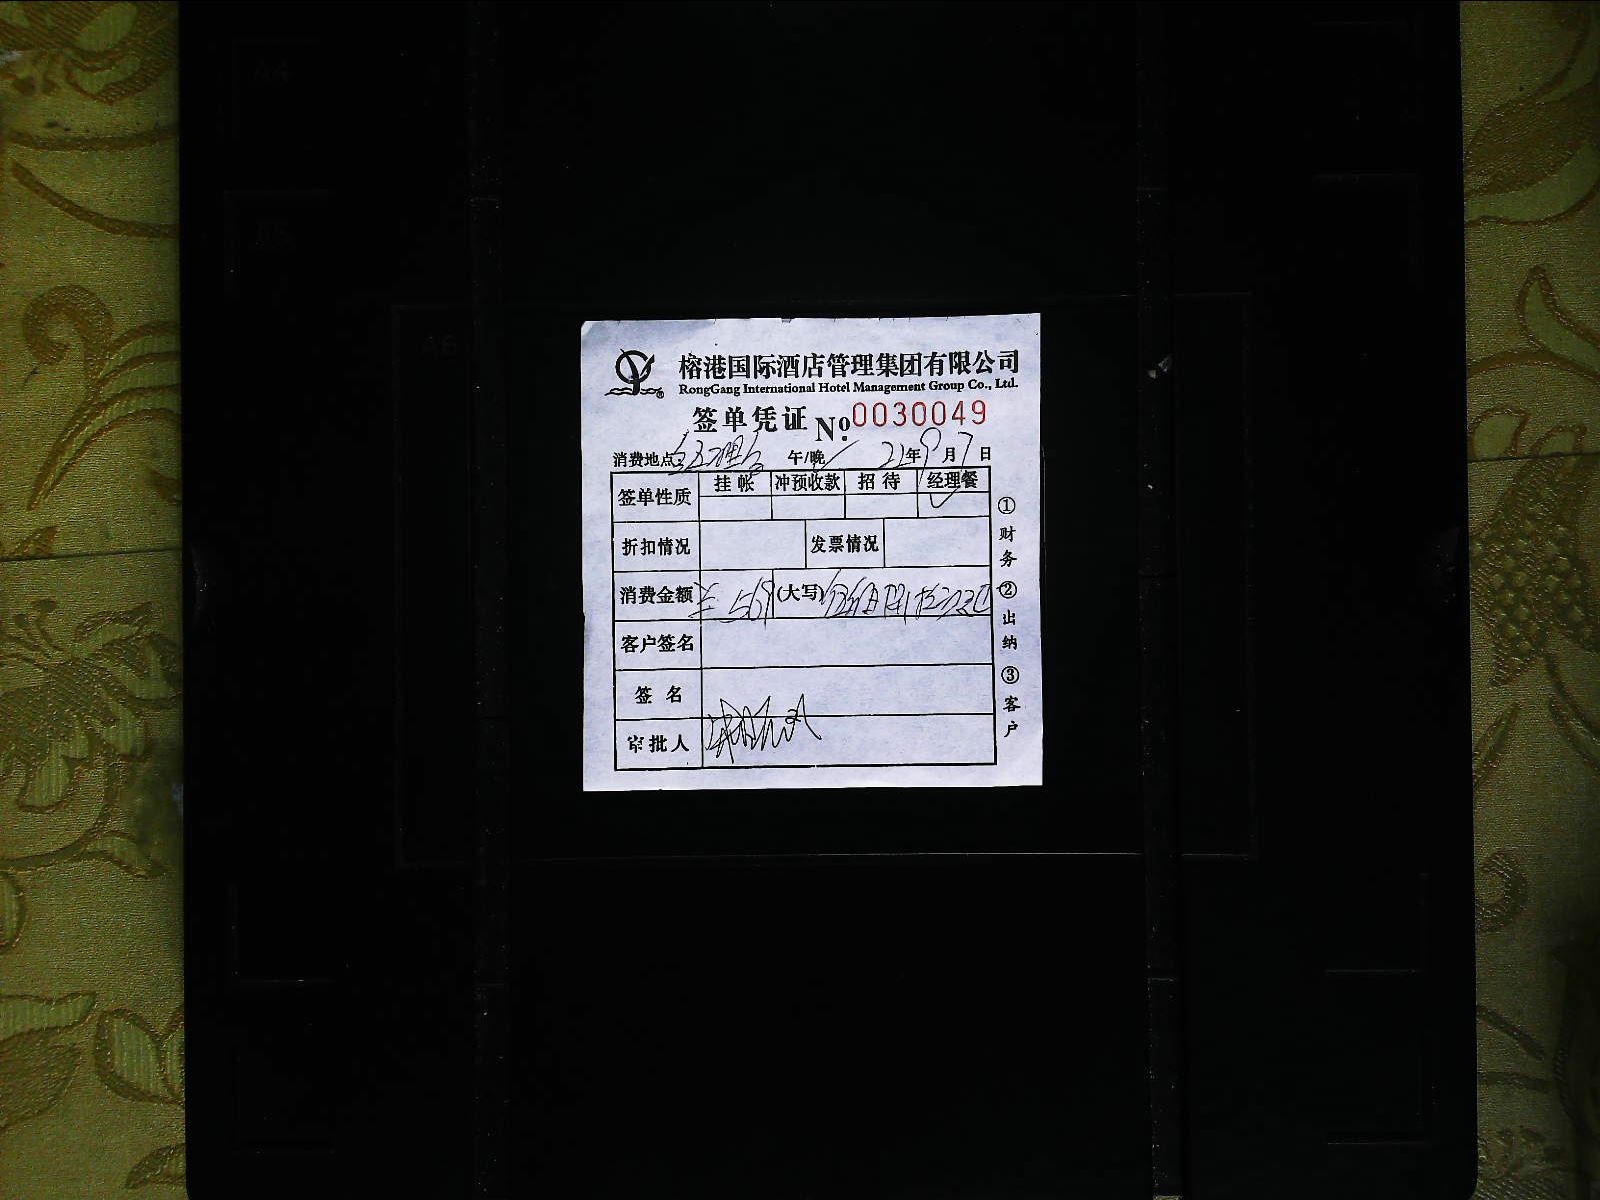 A4
A5
A6
榕港国际酒店管理集团有限公司
RongGang International Hotel Management Group Co., Ltd.
签单凭证 No. 0030049
消费地点: 午/晚 22年9月7日
签单性质 挂帐 冲预收款 招待 经理餐
折扣情况 发票情况
消费金额 (大写)
客户签名
签名
审批人
①财务 ②出纳 ③客户